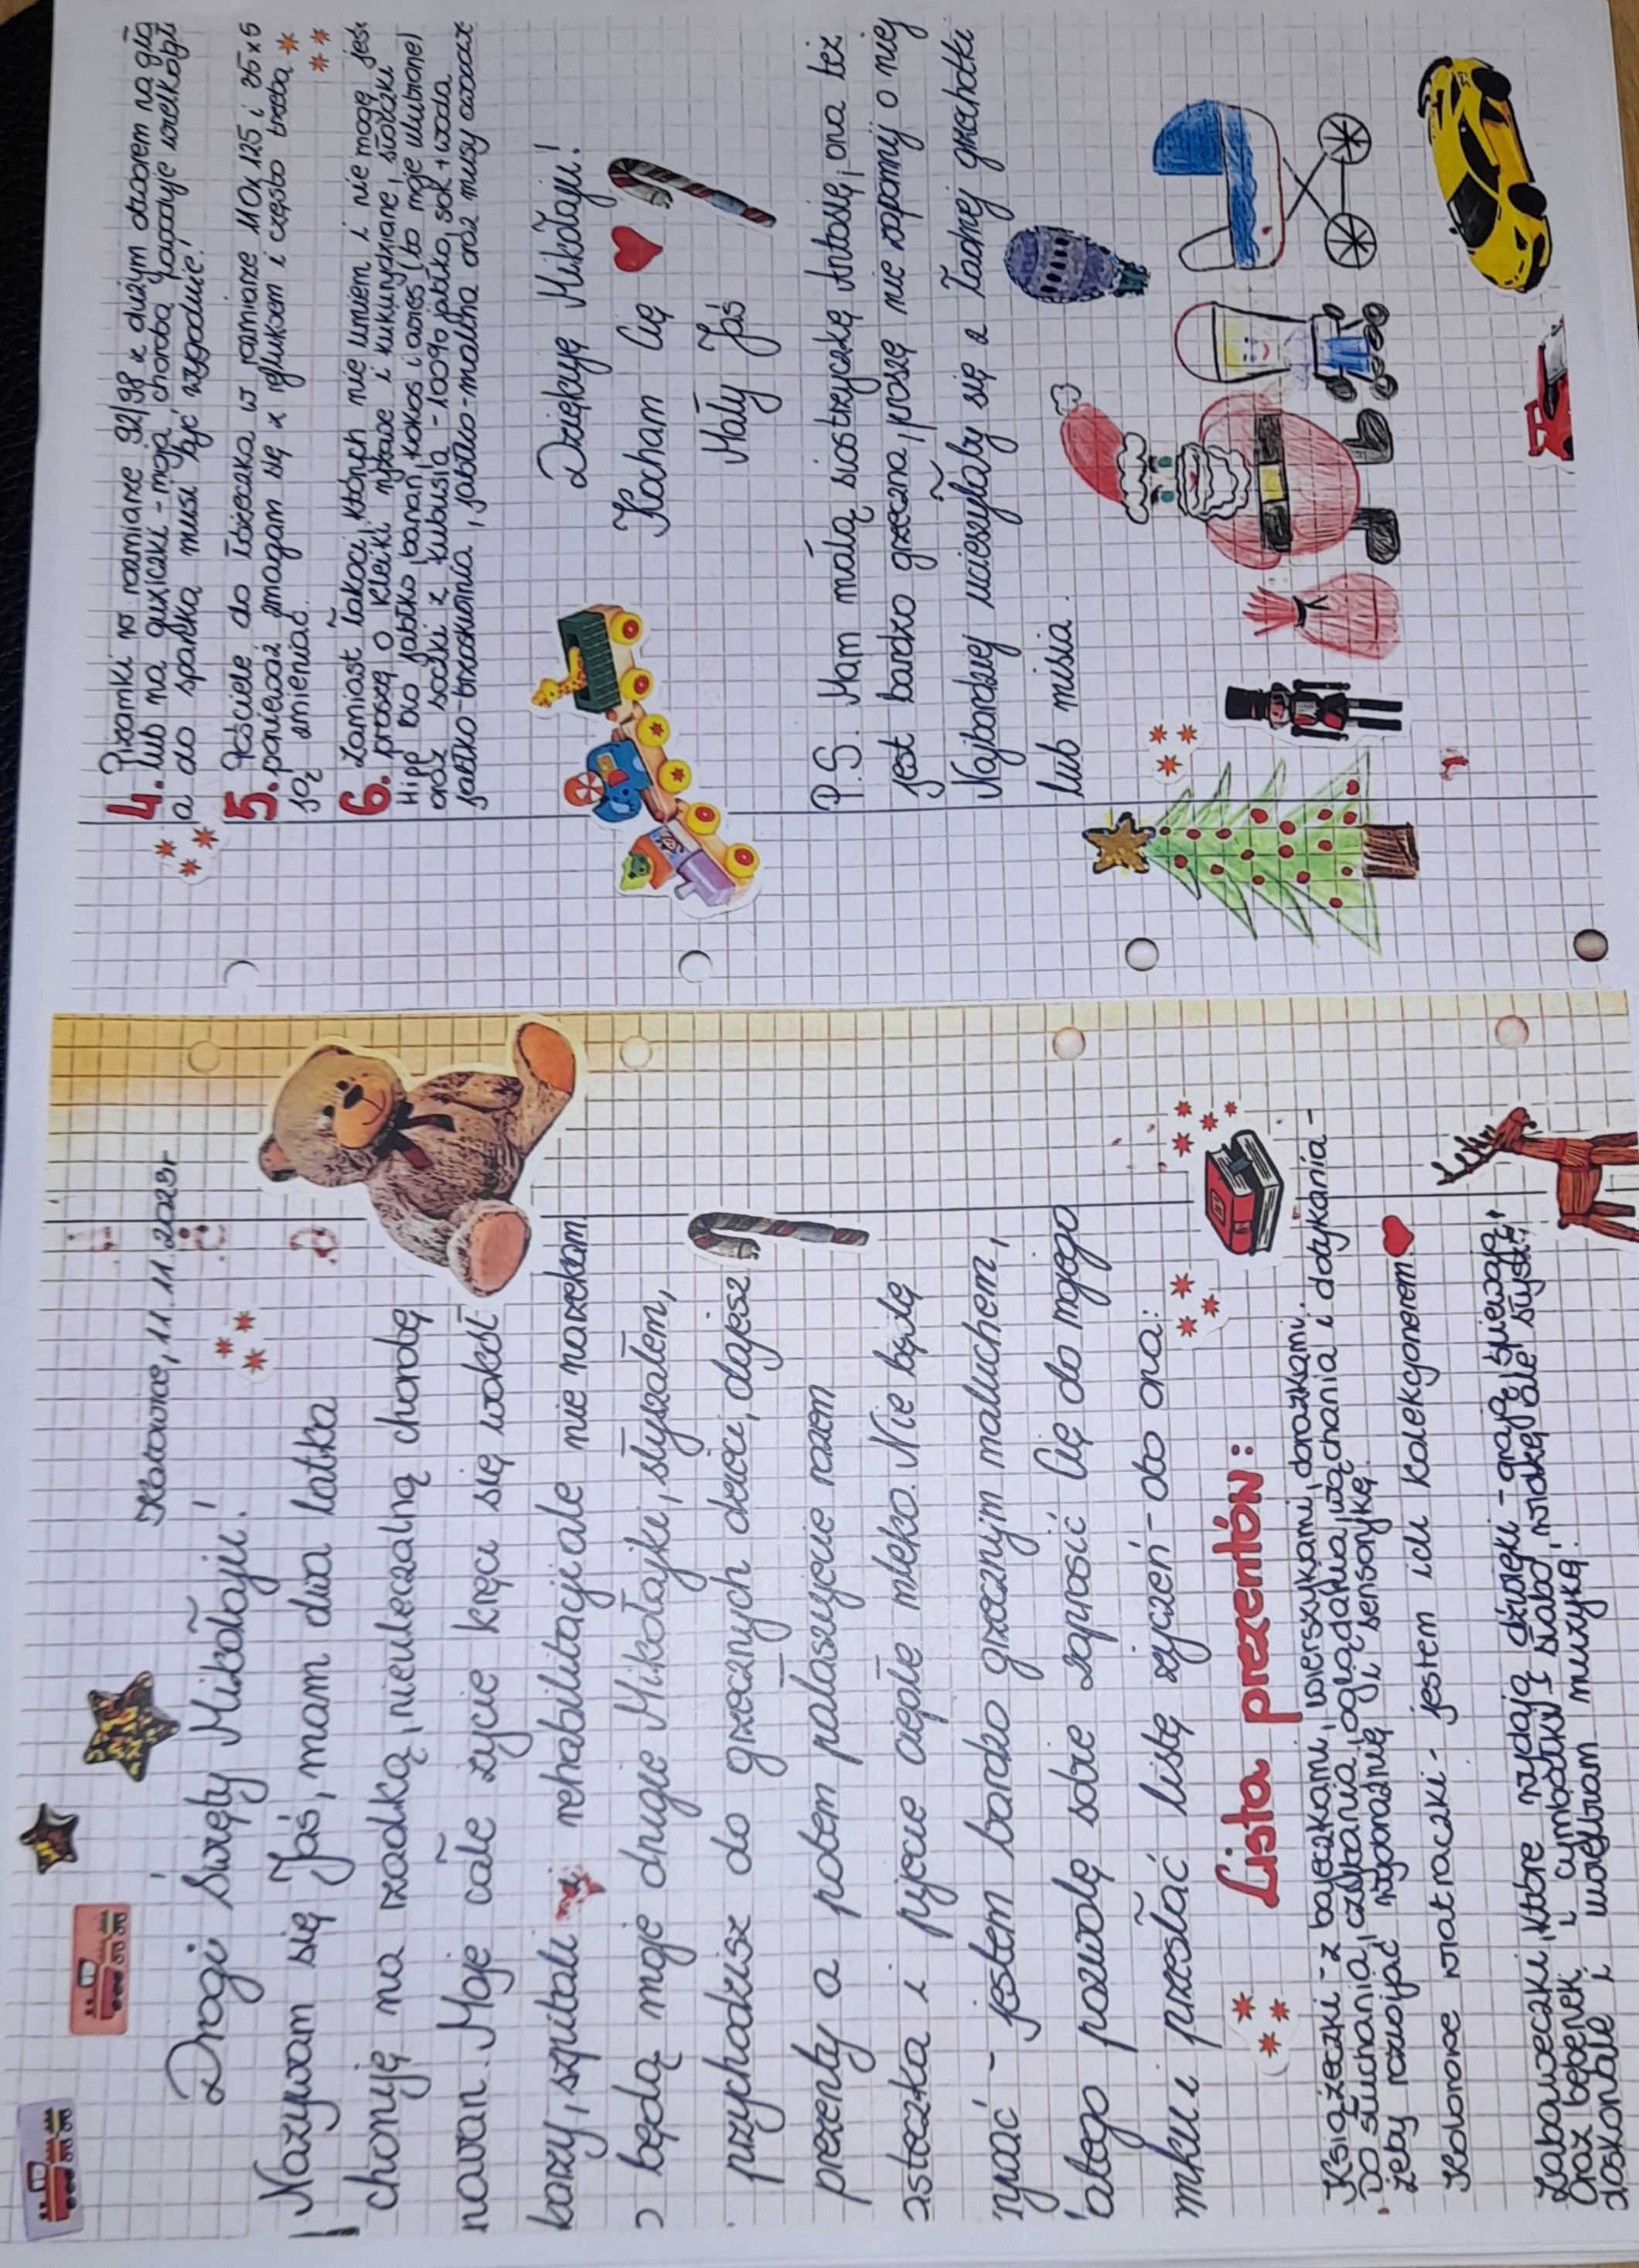 Katowice, 11.11.2023r
Drogi Święty Mikołaju!
Nazywam się Jaś, mam dwa latka
choruję na rzadką, nieuleczalną chorobę
navan. Moje całe życie kręci się wokół
karzy, szpitali rehabilitacji ale nie narzekam
będą moje drugie Mikołajki, słyszałem,
przychodzisz do grzecznych dzieci, dajesz
prezenty a potem pałaszujecie razem
asteczka i pijecie ciepłe mleko. Nie będę
rywać - jestem bardzo grzecznym maluchem,
latego pozwolę sobie zaprosić Cię do mojego
mku i przesłać listę życzeń - oto ona:
Lista prezentów:
Książeczki - z bajeczkami, wierszykami, obrazkami.
Do słuchania, czytania, oglądania, wąchania i dotykania -
żeby rozwijać wyobraźnię i sensorykę.
Kolorowe wiatraczki - jestem ich kolekcjonerem
Zabaweczki, które wydają dźwięki - grają, śpiewają,
oraz bębenek i cymbałki, słabo widzę ale słyszę
doskonale i uwielbiam muzykę!
4. Piżamki w rozmiarze 92/98 z dużym otworem na gło
lub na guziczki - moja choroba powoduje wielkogło
a do spanka musi być wygodnie!
5. Pościele do łóżeczka w rozmiarze 110x125 i 35x5
ponieważ zmagam się z refluksem i często trzeba
ją zmieniać.
6. Zamiast łakoci, których nie umiem i nie mogę jeść
proszę o kleiki ryżowe i kukurydziane, słoiczki
Hipp bio jabłko, banan, kokos i owies (to moje ulubione)
oraz soczki z kubusia - 100% jabłko, sok + woda
jabłko-brzoskwinia, jabłko-malina oraz musy owocowe
Dziękuję Mikołaju!
Kocham Cię
Mały Jaś
P.S. Mam małą siostrzyczkę Antosię, ona też
jest bardzo grzeczna, proszę nie zapomnij o niej
Najbardziej ucieszyłaby się z ładnej grzechotki
lub misia.